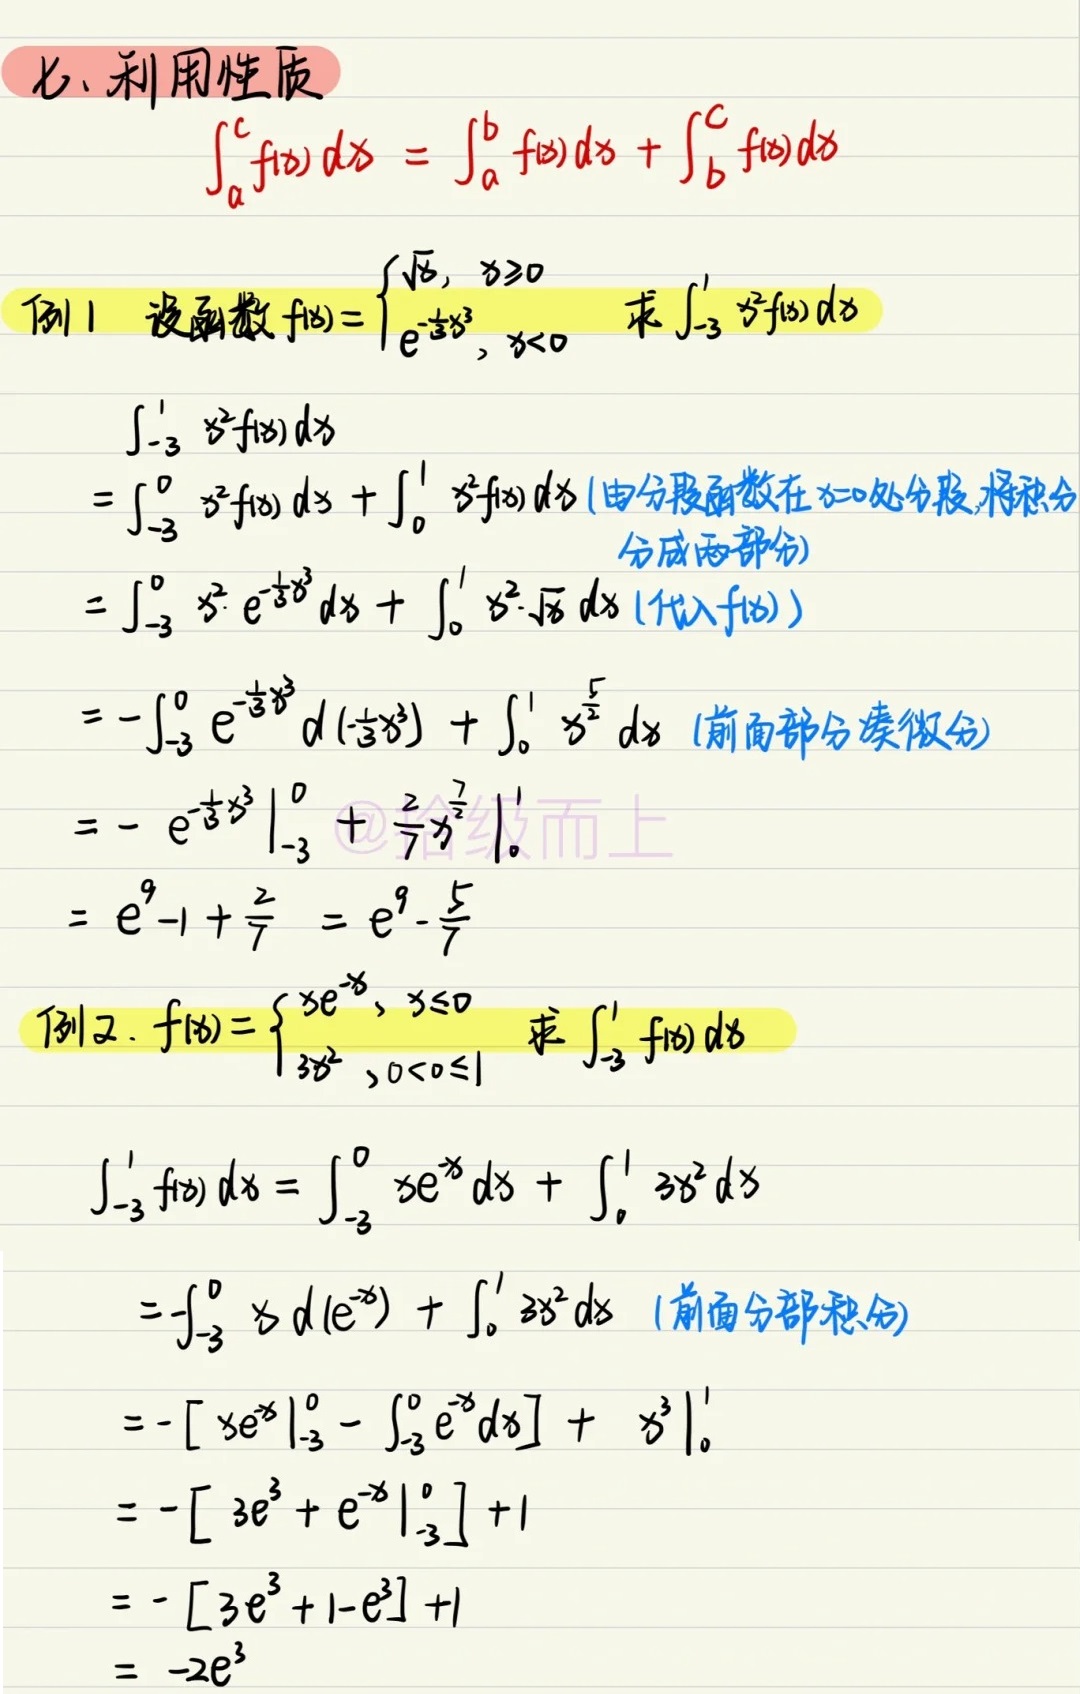 七、利用性质
∫_a^c f(x)dx = ∫_a^b f(x)dx + ∫_b^c f(x)dx
例1 设函数 f(x) = { √x, x≥0 ; e^{-1/3 x³}, x<0 求 ∫_{-3}^1 x²f(x)dx
∫_{-3}^1 x²f(x)dx
= ∫_{-3}^0 x²f(x)dx + ∫_0^1 x²f(x)dx (由分段函数在x=0处分段,将积分
分成两部分)
= ∫_{-3}^0 x²·e^{-1/3 x³}dx + ∫_0^1 x²·√x dx (代入f(x))
= -∫_{-3}^0 e^{-1/3 x³} d(-1/3 x³) + ∫_0^1 x^{5/2} dx (前面部分凑微分)
= - e^{-1/3 x³} |_{-3}^0 + 2/7 x^{7/2} |_0^1
@拾级而上
= e⁹ - 1 + 2/7 = e⁹ - 5/7
例2. f(x) = { xe^{-x}, x≤0 ; 3x², 0<0≤1 求 ∫_{-3}^1 f(x)dx
∫_{-3}^1 f(x)dx = ∫_{-3}^0 xe^{-x}dx + ∫_0^1 3x²dx
= -∫_{-3}^0 x d(e^{-x}) + ∫_0^1 3x²dx (前面分部积分)
= -[xe^{-x}|_{-3}^0 - ∫_{-3}^0 e^{-x}dx] + x³|_0^1
= -[3e³ + e^{-x}|_{-3}^0] + 1
= -[3e³ + 1 - e³] + 1
= -2e³